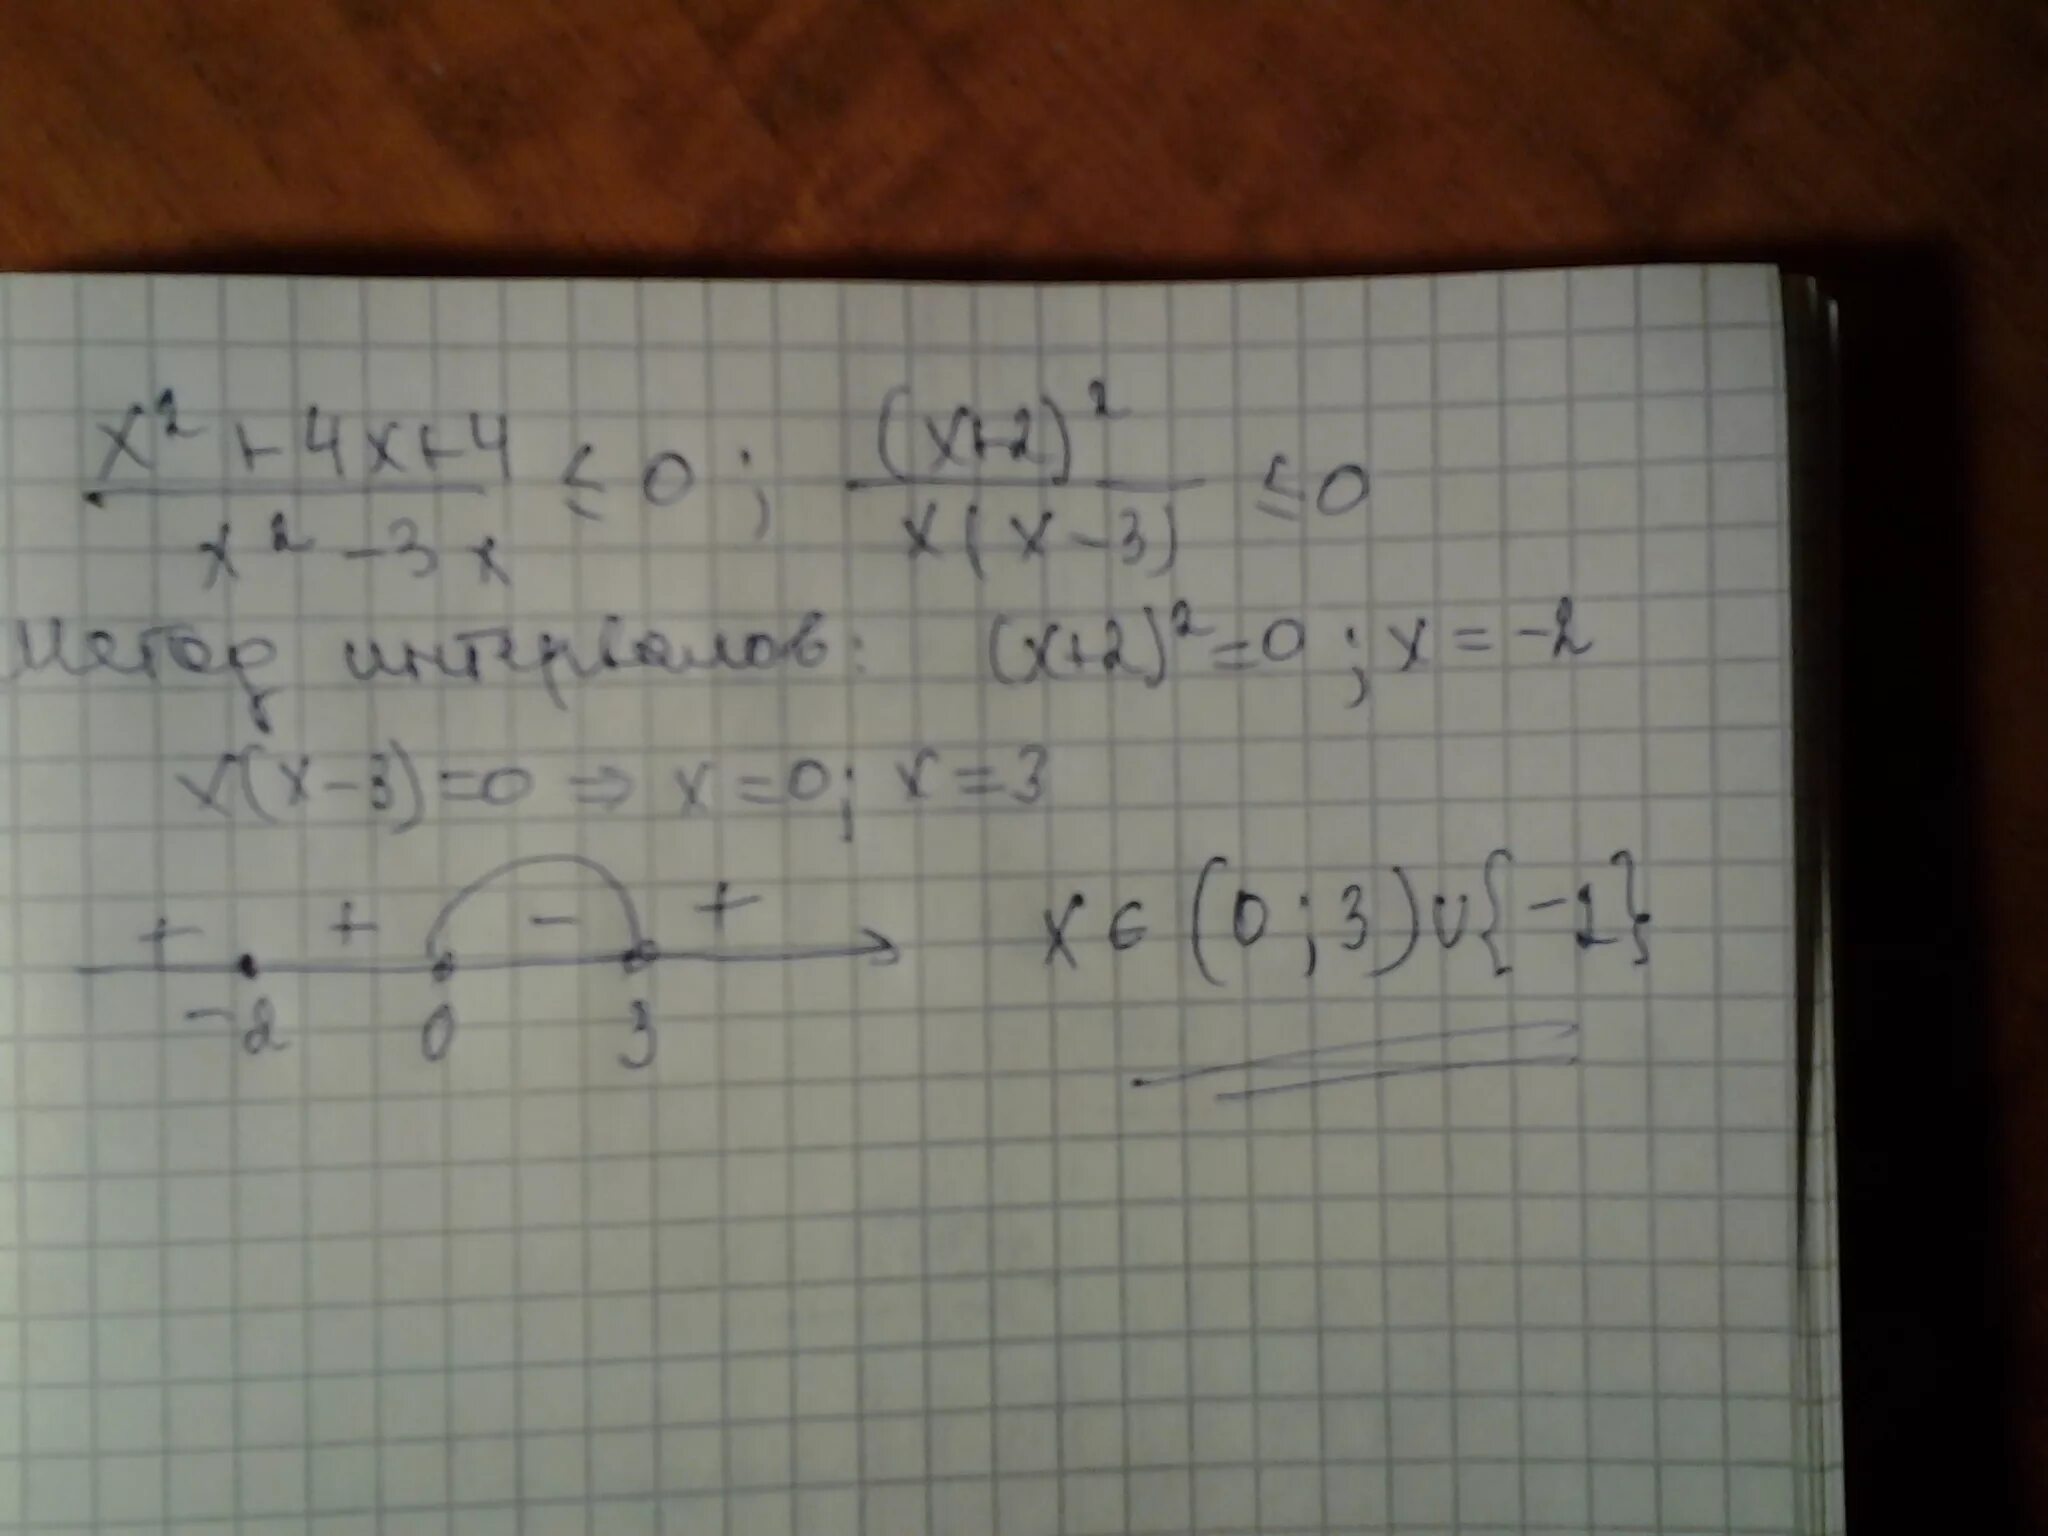 x² + 4x + 4 / x² - 3x ≤ 0 ; (x+2)² / x(x-3) ≤ 0
Метод интервалов: (x+2)² = 0 ; x = -2
x(x-3) = 0 ⇒ x = 0 ; x = 3
+ + - + x ∈ (0 ; 3) ∪ {-2}
-2 0 3